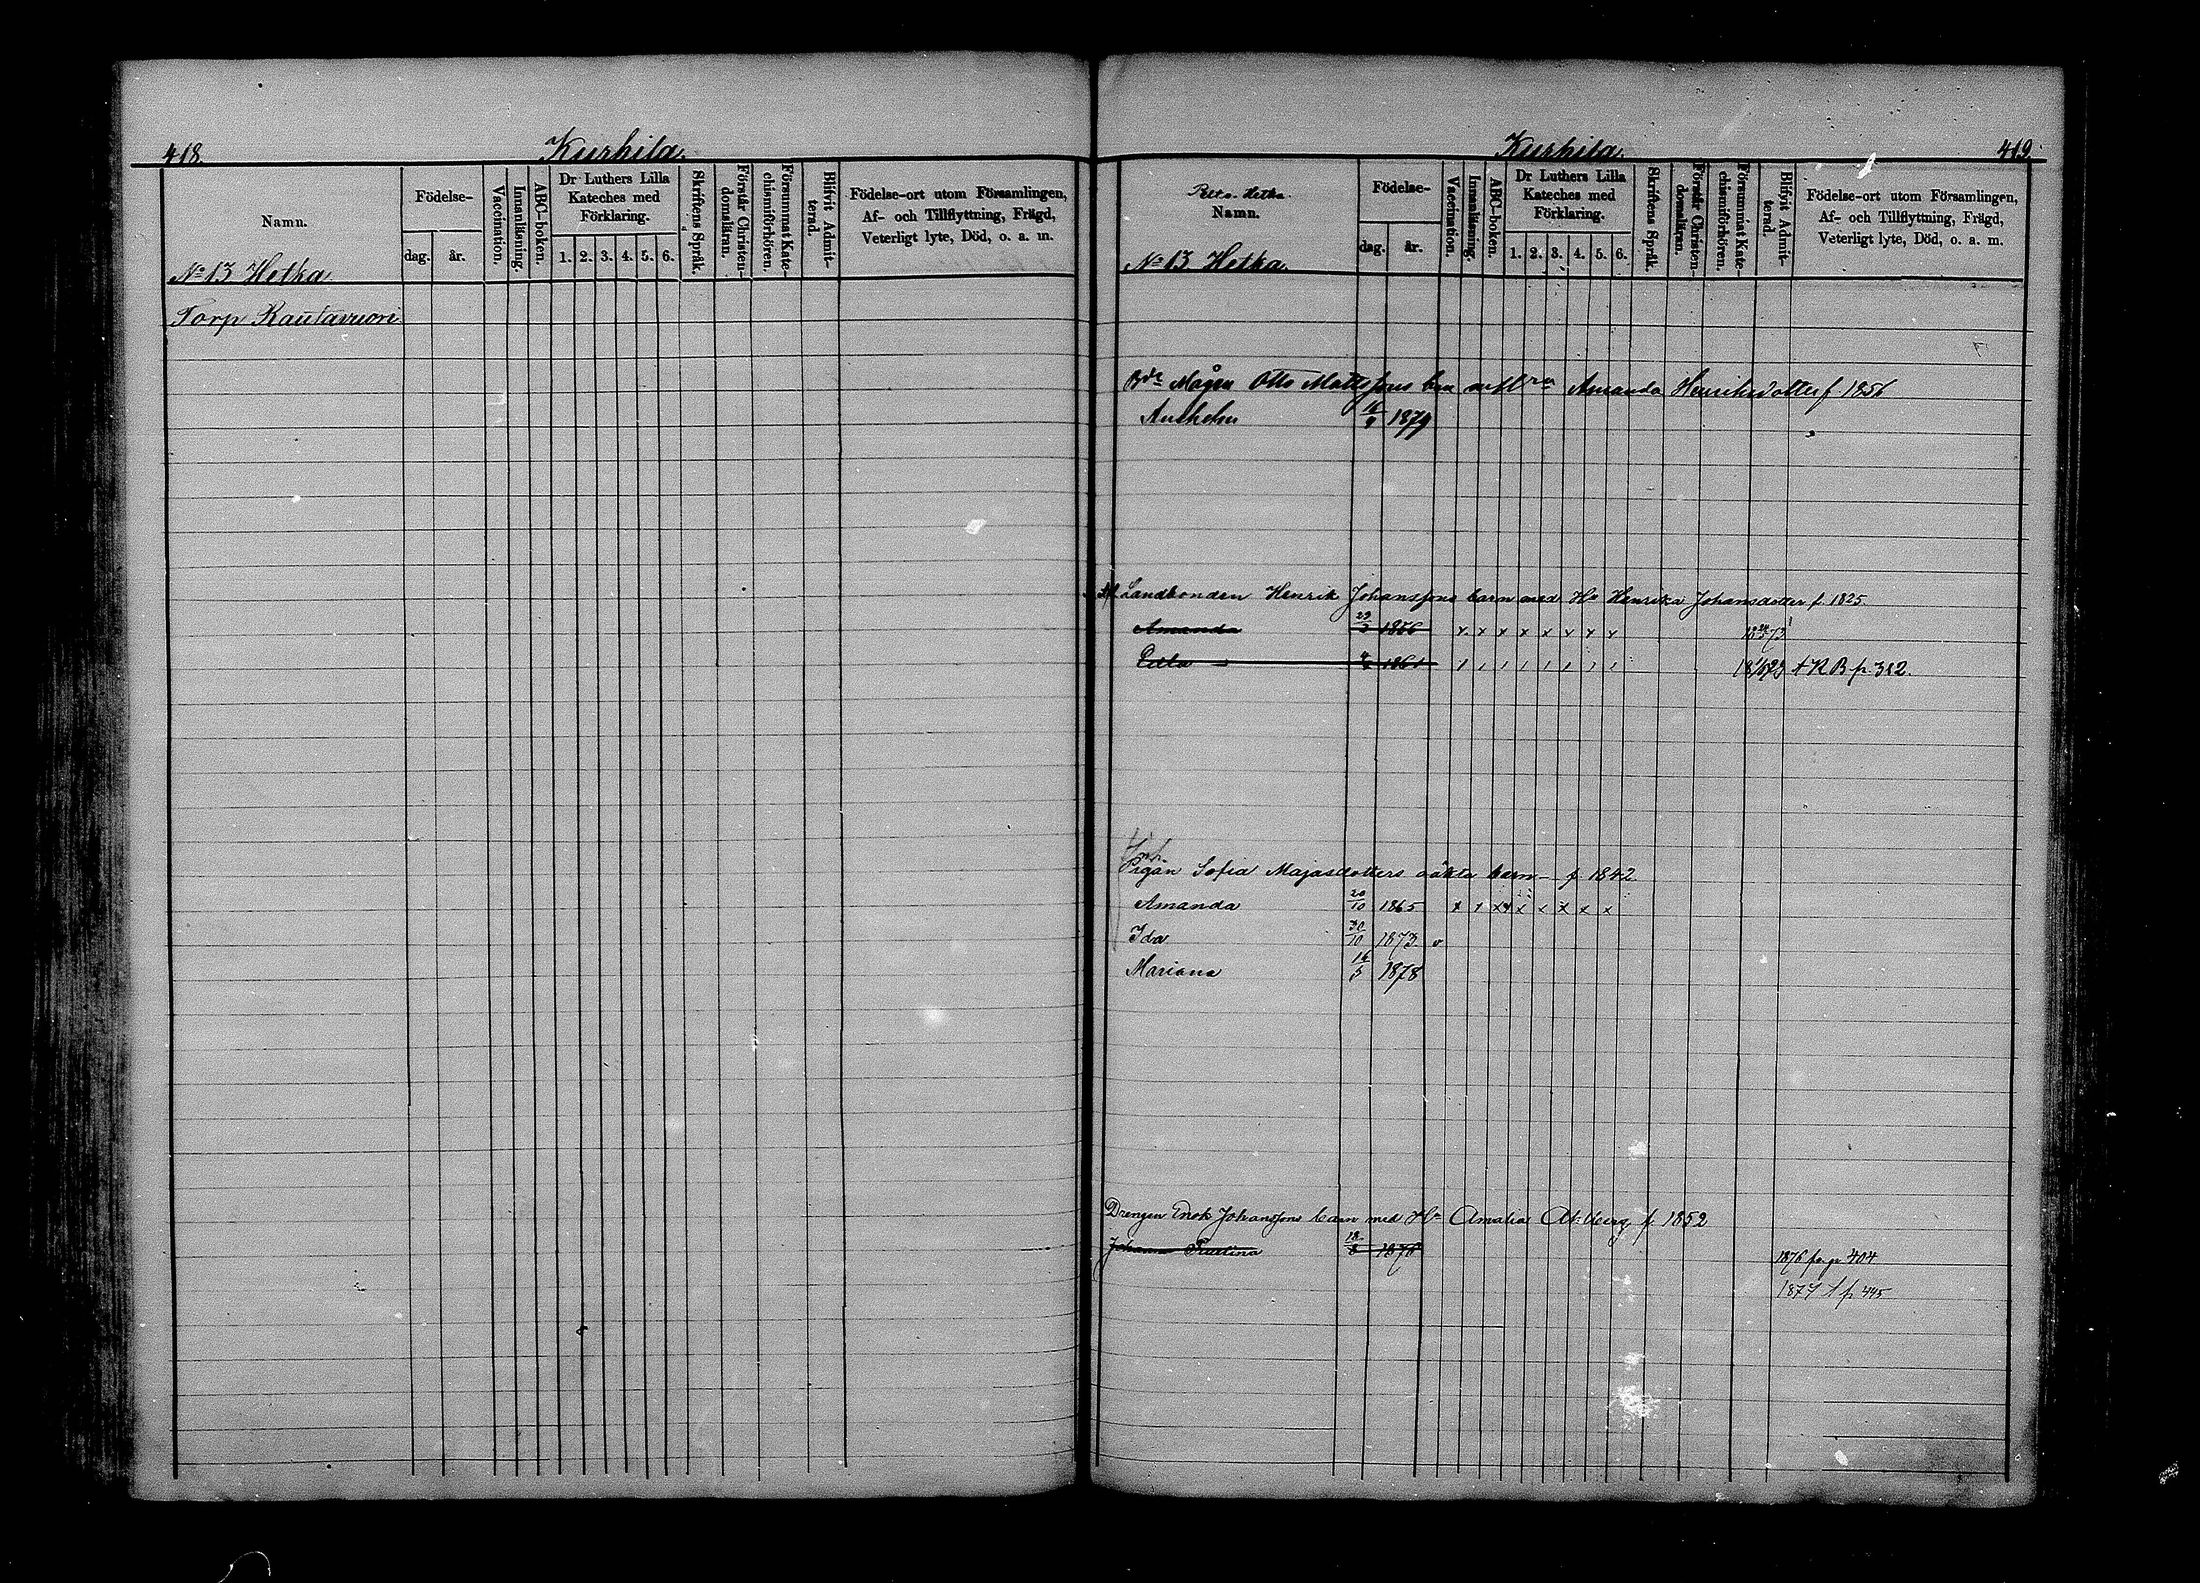 418.
Kurhila.
Namn.
Födelse-
dag. år.
Vaccination.
Innanläsning.
ABC-boken.
Dr Luthers Lilla Kateches med Förklaring.
1. 2. 3. 4. 5. 6.
Skriftens Språk.
Förstår Christendomsläran.
Försummat Katechismiförhören.
Blifvit Admitterad.
Födelse-ort utom Församlingen,
Af- och Tillflyttning, Frägd,
Veterligt lyte, Död, o. a. m.
No 13 Hetka
Torp Rautavuori
Kurhila.
419.
Hetka
Namn.
Födelse-
dag. år.
Vaccination.
Innanläsning.
ABC-boken.
Dr Luthers Lilla Kateches med Förklaring.
1. 2. 3. 4. 5. 6.
Skriftens Språk.
Förstår Christendomsläran.
Försummat Katechismiförhören.
Blifvit Admitterad.
Födelse-ort utom Församlingen,
Af- och Tillflyttning, Frägd,
Veterligt lyte, Död, o. a. m.
No 13 Hetka.
Mågen Otto Mattssons barn Amanda Henriksdotter f 1856
1879
Landbonden Henrik Johanssons barn med Ha Henrika Johansdotter f. 1825.
Amanda 23/3 1856 x x x x x x x x
1861 R B p. 312.
Pigan Sofia Majasdotters oäkta barn – f 1842
Amanda 20/10 1865 x x x x x x x x x
Ida 30/10 1873 v
Mariana 16/5 1878
Drengen Enok Johanssons barn med Ha Amalia f. 1852
Johanna 18/8 1876
1876 fr. p. 404
1877 t p 445